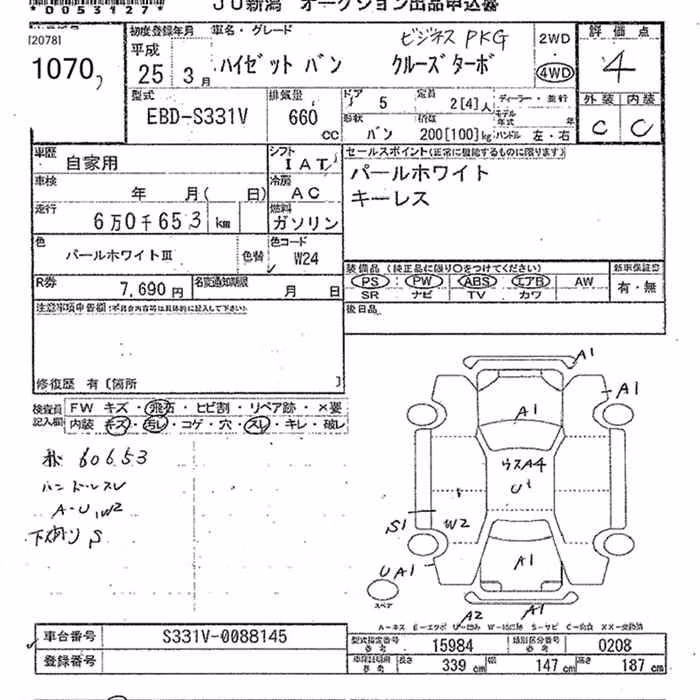 *0053127*
JU新潟 オークション出品申込書
[2078]
1070,
初度登録年月
平成
25 3月
車名・グレード
ハイゼット バン
ビジネス PKG
クルーズターボ
2WD
4WD
評価点
4
型式
EBD-S331V
排気量
660
CC
ドア
5
定員
2[4]人
ディーラー・並行
形状
バン
積載
200[100]kg
モデル年式 年
ハンドル 左・右
外装 内装
C C
車歴
自家用
シフト
IAT
セールスポイント(正常に機能するものに限ります)
パールホワイト
キーレス
車検
年 月( 日)
冷房
AC
走行
6万0千653 km
燃料
ガソリン
色
パールホワイトIII
色替
色コード
W24
装備品(純正品に限り○をつけてください)
新車保証書
PS PW ABS エアB AW
SR ナビ TV カワ
有・無
R券
7,690円
名変通知期限
月 日
後日品
注意事項申告欄:(不具合内容等は具体的に記入して下さい)
修復歴 有〔箇所 〕
検査員
記入欄
FW キズ・飛石・ヒビ割・リペア跡・×要
内装 キズ・汚レ・コゲ・穴・スレ・キレ・破レ
60653
ハンドルスレ
A-U,W2
下廻りS
A1
A1
A1
ウスA4
U1
S1
W2
UA1
A1
A2
A1
スペア
A-キズ E-エクボ U-凹み W-補修跡 S-サビ C-腐食 XX-交換済
車台番号
S331V-0088145
登録番号
型式指定番号
参考
15984
類別区分番号
参考
0208
車検証記載
参考
長さ
339 cm
幅
147 cm
高さ
187 cm